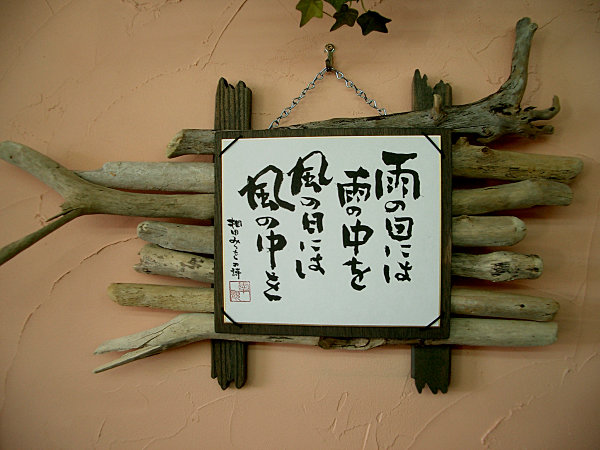 雨の日には
雨の中を
風の日には
風の中を
相田みつをの詩